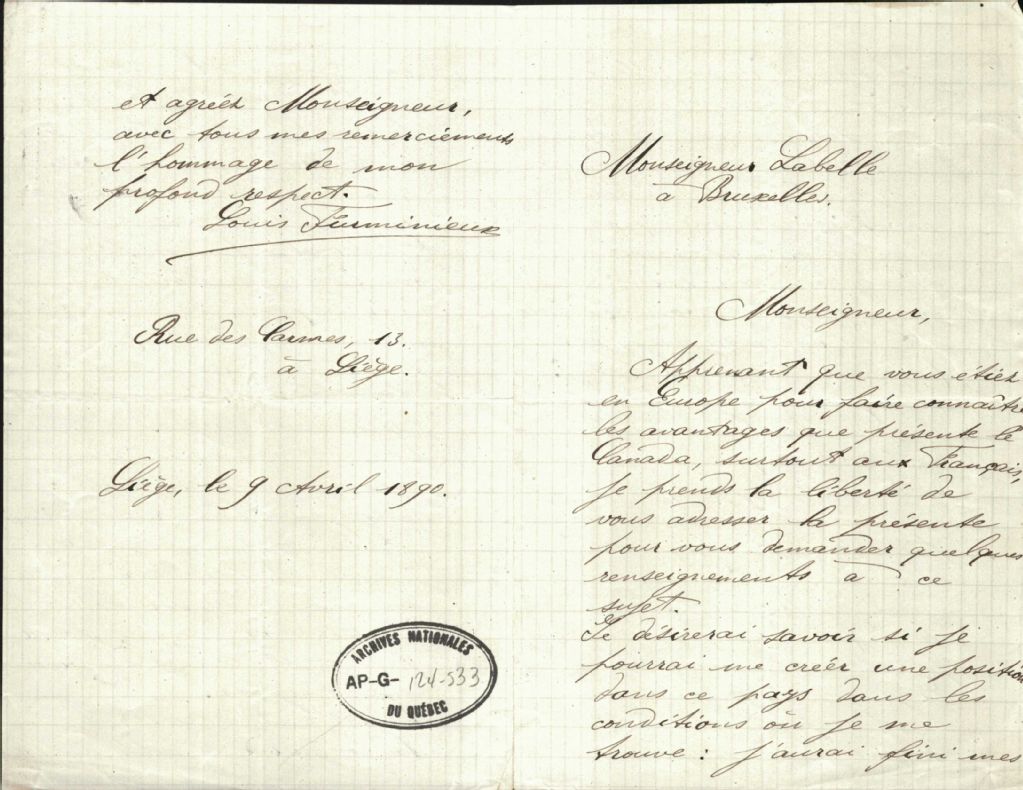 et agréez Monseigneur,
avec tous mes remerciements
l'hommage de mon
profond respect.
Louis
Rue des Carmes, 13.
à Liège.
Liège, le 9 Avril 1890.
ARCHIVES NATIONALES
AP-G-124-533
DU QUÉBEC
Monseigneur Labelle
à Bruxelles.
Monseigneur,
Apprenant que vous étiez
en Europe pour faire connaître
les avantages que présente le
Canada, surtout aux Français,
je prends la liberté de
vous adresser la présente
pour vous demander quelques
renseignements à ce
sujet.
Je désirerai savoir si je
pourrai me créer une position
dans ce pays dans les
conditions où je me
trouve : j'aurai fini mes